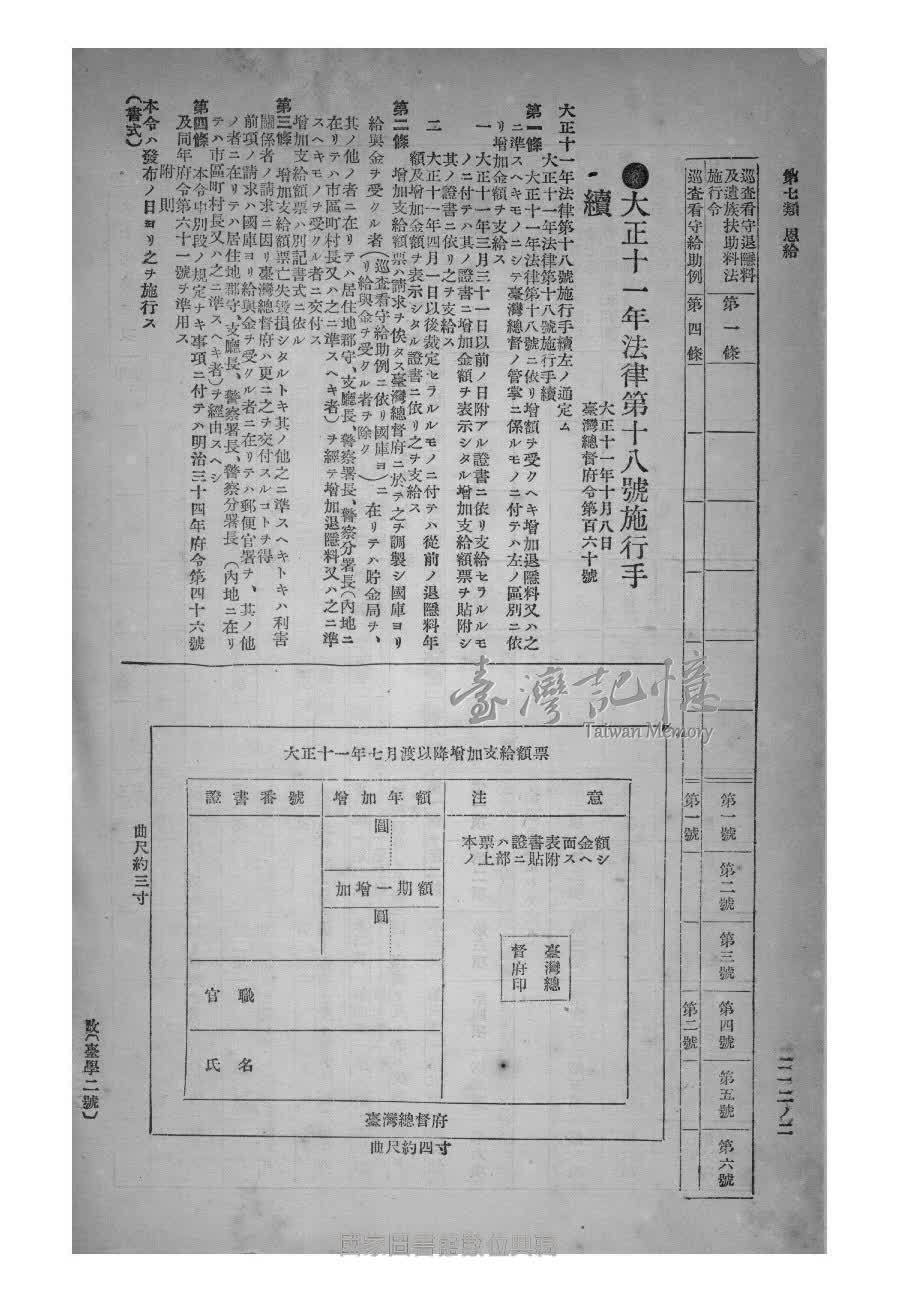 第七類 恩給
二一二ノ二
巡査看守退隱料
及遺族扶助料法
施行令
第一條
第一號
第二號
第三號
第四號
第五號
第六號
巡査看守給助例
第四條
第一號
第二號
●大正十一年法律第十八號施行手
續
大正十一年十月八日
臺灣總督府令第百六十號
大正十一年法律第十八號施行手續左ノ通定ム
大正十一年法律第十八號施行手續
第一條 大正十一年法律第十八號ニ依リ增額ヲ受クヘキ增加退隱料又ハ之
ニ準スヘキモノニシテ臺灣總督ノ管掌ニ係ルモノニ付テハ左ノ區別ニ依
リ增加金額ヲ支給ス
一 大正十一年三月三十一日以前ノ日附アル證書ニ依リ支給セラルルモ
ノニ付テハ其ノ證書ニ增加金額ヲ表示シタル增加支給額票ヲ貼附シ
其ノ證書ニ依リ之ヲ支給ス
二 大正十一年四月一日以後裁定セラルルモノニ付テハ從前ノ退隱料年
額及增加金額ヲ表示シタル證書ニ依リ之ヲ支給ス
第二條 增加支給額票ハ請求ヲ俟タス臺灣總督府ニ於テ之ヲ調製シ國庫ヨリ
給與金ヲ受クル者(巡査看守給助例ニ依リ國庫ヨリ給與金ヲ受クル者ヲ除ク)ニ在リテハ貯金局ヲ、
其ノ他ノ者ニ在リテハ居住地郡守、支廳長、警察署長、警察分署長(內地ニ
在リテハ市區町村長又ハ之ニ準スヘキ者)ヲ經テ增加退隱料又ハ之ニ準
スヘキモノヲ受クル者ニ交付ス
增加支給額票ハ別記書式ニ依ル
第三條 增加支給額票亡失毀損シタルトキ其ノ他之ニ準スヘキトキハ利害
關係者ノ請求ニ因リ臺灣總督府ハ更ニ之ヲ交付スルコトヲ得
前項ノ請求ハ國庫ヨリ給與金ヲ受クル者ニ在リテハ郵便官署ヲ、其ノ他
ノ者ニ在リテハ居住地郡守、支廳長、警察署長、警察分署長(內地ニ在リ
テハ市區町村長又ハ之ニ準スヘキ者)ヲ經由スヘシ
第四條 本令中別段ノ規定ナキ事項ニ付テハ明治三十四年府令第四十六號
及同年府令第六十一號ヲ準用ス
附則
本令ハ發布ノ日ヨリ之ヲ施行ス
(書式)
臺灣記憶
Taiwan Memory
大正十一年七月渡以降增加支給額票
證書番號
增加年額
圓
加增一期額
圓
官職
氏名
注意
本票ハ證書表面金額
ノ上部ニ貼附スヘシ
臺灣總
督府印
臺灣總督府
曲尺約四寸
曲尺約三寸
改(臺學二號)
國家圖書館數位典藏